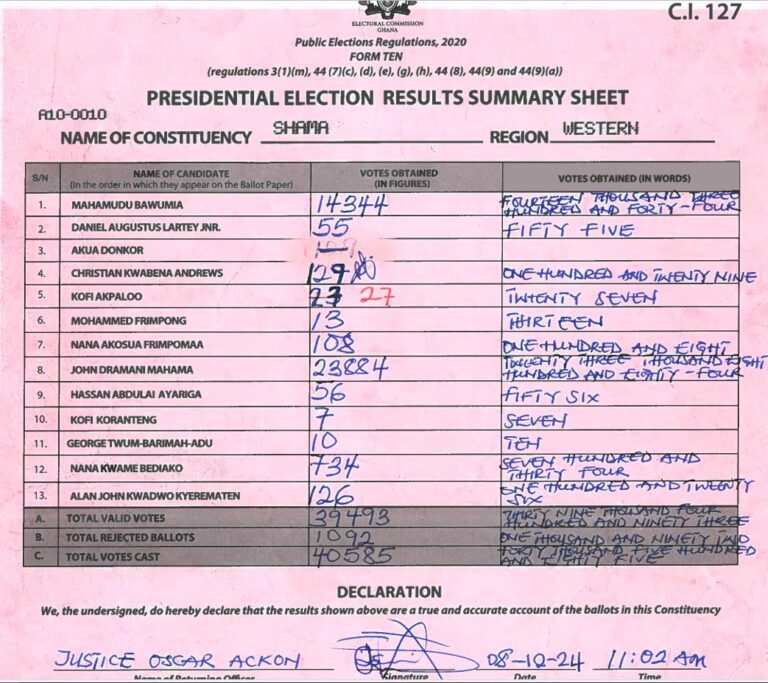 C.I. 127
ELECTORAL COMMISSION
GHANA
Public Elections Regulations, 2020
FORM TEN
(regulations 3(1)(m), 44 (7)(c), (d), (e), (g), (h), 44 (8), 44(9) and 44(9)(a))
PRESIDENTIAL ELECTION RESULTS SUMMARY SHEET
A10-0010
NAME OF CONSTITUENCY SHAMA REGION WESTERN
S/N NAME OF CANDIDATE (In the order in which they appear on the Ballot Paper) VOTES OBTAINED (IN FIGURES) VOTES OBTAINED (IN WORDS)
1. MAHAMUDU BAWUMIA 14344 FOURTEEN THOUSAND THREE HUNDRED AND FORTY-FOUR
2. DANIEL AUGUSTUS LARTEY JNR. 55 FIFTY FIVE
3. AKUA DONKOR
4. CHRISTIAN KWABENA ANDREWS 129 ONE HUNDRED AND TWENTY NINE
5. KOFI AKPALOO 27 27 TWENTY SEVEN
6. MOHAMMED FRIMPONG 13 THIRTEEN
7. NANA AKOSUA FRIMPOMAA 108 ONE HUNDRED AND EIGHT
8. JOHN DRAMANI MAHAMA 23884 TWENTY THREE THOUSAND EIGHT HUNDRED AND EIGHTY-FOUR
9. HASSAN ABDULAI AYARIGA 56 FIFTY SIX
10. KOFI KORANTENG 7 SEVEN
11. GEORGE TWUM-BARIMAH-ADU 10 TEN
12. NANA KWAME BEDIAKO 734 SEVEN HUNDRED AND THIRTY FOUR
13. ALAN JOHN KWADWO KYEREMATEN 126 ONE HUNDRED AND TWENTY SIX
A. TOTAL VALID VOTES 39493 THIRTY NINE THOUSAND FOUR HUNDRED AND NINETY THREE
B. TOTAL REJECTED BALLOTS 1092 ONE THOUSAND AND NINETY TWO
C. TOTAL VOTES CAST 40585 FORTY THOUSAND FIVE HUNDRED AND EIGHTY FIVE
DECLARATION
We, the undersigned, do hereby declare that the results shown above are a true and accurate account of the ballots in this Constituency
JUSTICE OSCAR ACKON 08-12-24 11:02 AM
Name of Returning Officer Signature Date Time